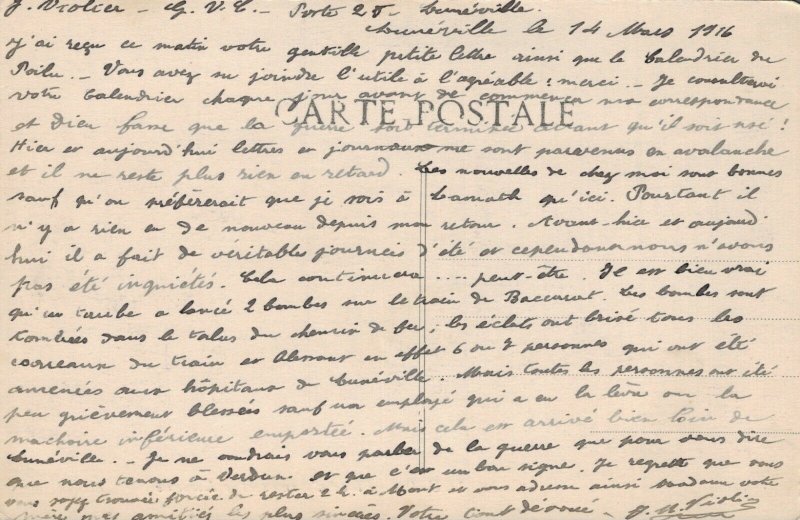 J. Violier - G. V. C. - Poste 25 - Lunéville.
Lunéville le 14 Mars 1916
J'ai reçu ce matin votre gentille petite lettre ainsi que le Calendrier du
Poilu. - Vous avez su joindre l'utile à l'agréable : merci. - Je consulterai
votre Calendrier chaque jour avant de commencer ma correspondance
CARTE POSTALE
et Dieu fasse que la guerre soit terminée avant qu'il soit usé !
Hier et aujourd'hui lettres et journaux me sont parvenus en avalanche
et il ne reste plus rien en retard. Les nouvelles de chez moi sont bonnes
sauf qu'on préfèrerait que je sois à Lamath qu'ici. Pourtant il
n'y a rien eu de nouveau depuis mon retour. Avant-hier et aujourd
hui il a fait de véritables journées d'été et cependant nous n'avons
pas été inquiétés. Cela continuera .... peut-être. Il est bien vrai
qu'un taube a lancé 2 bombes sur le train de Baccarat. Les bombes sont
tombées dans le talus du chemin de fer ; les éclats ont brisé tous les
carreaux du train et blessant en effet 6 ou 7 personnes qui ont été
amenées aux hôpitaux de Lunéville. Mais toutes les personnes ont été
peu grièvement blessées sauf un employé qui a eu la lèvre ou la
machoire inférieure emportée. Mais cela est arrivé bien loin de
Lunéville. - Je ne voudrais vous parler de la guerre que pour vous dire
que nous tenons à Verdun et que c'est un bon signe. Je regrette que vous
vous soyez trouvée forcée de rester 2 h. à Mont et vous adresse ainsi Madame votre
mère mes amitiés les plus sincères. Votre tout dévoué -